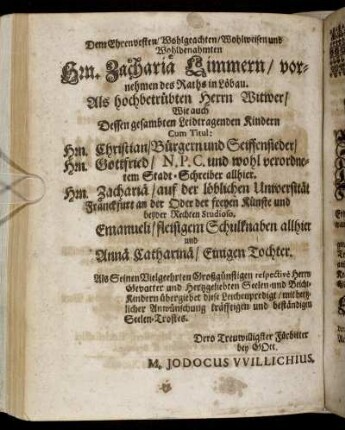 Dem Ehrenvesten/ Wohlgeachten/ Wohlweisen und
Wohlbenahmten
Hrn. Zachariä Zimmern/ vor-
nehmen des Raths in Löbau.
Als hochbetrübten Herrn Witwer/
Wie auch
Dessen gesambten Leidtragenden Kindern
Cum Titul:
Hrn. Christian/ Bürgern und Seiffensieder/
Hrn. Gottfried/ N. P. C. und wohl verordne-
tem Stadt-Schreiber allhier.
Hrn. Zachariä/ auf der löblichen Universität
Franckfurt an der Oder der freyen Künste und
beyder Rechten Studioso,
Emanueli/ fleisigem Schulknaben allhier
und
Annä Catharinä/ Einigen Tochter.
Als Seinen Vielgeehrten Großgünstigen respectivè Herrn
Gevatter und Hertzgeliebten Seelen- und Beicht-
Kindern übergiebet diese Leichenpredigt/ mit hertz-
licher Anwünschung kräfftigen und beständigen
Seelen-Trostes.
Dero Treuwilligster Fürbitter
bey GOtt.
M. JODOCUS VVILLICHIUS.